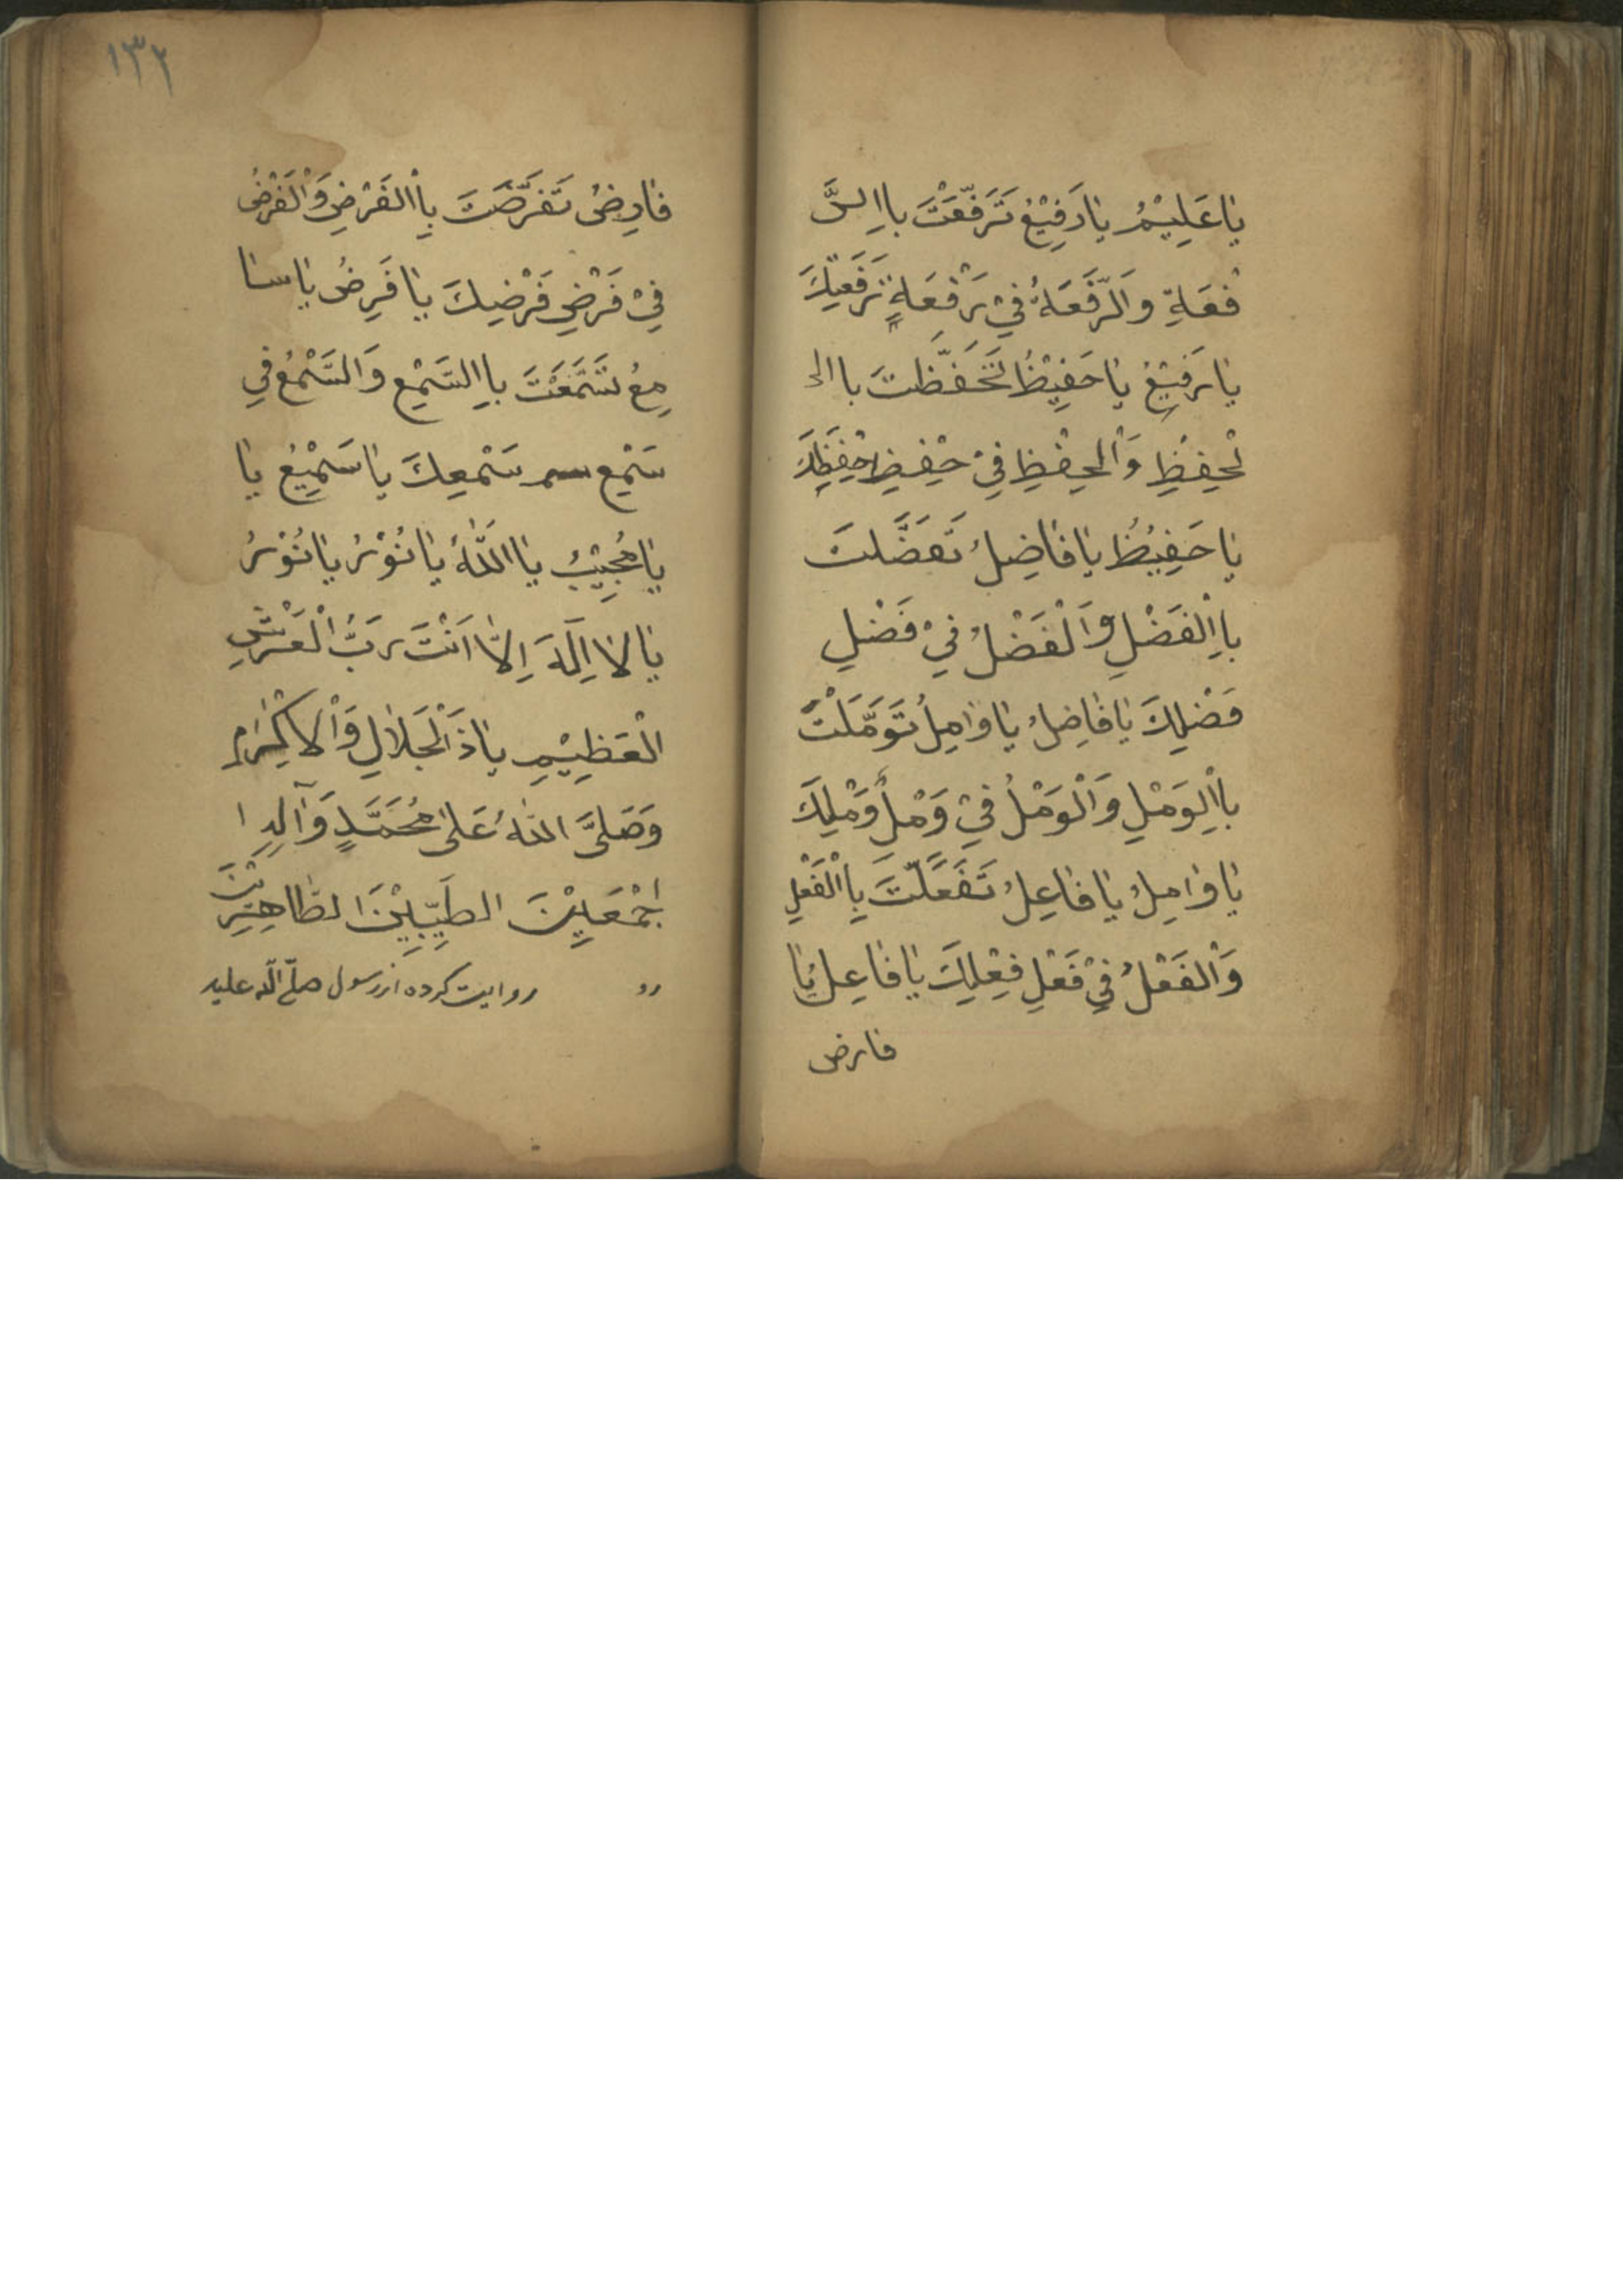 يا عَلِيْمُ يا رَفِيْعُ تَرَفَّعْتَ بااِلرَّ
فْعَةِ والرَّفْعَةُ فِيْ رَفْعَةِ رَفْعَتِكَ
يا رَفِيْعُ يا حَفِيْظُ تَحَفَّظْتَ باالحِ
لْحِفِظِ وَالْحِفْظِ فِيْ حِفْظِ حِفْظِكَ
يا حَفِيْظُ يا فاضِلُ تَفَضَّلتَ
بااِلْفَضْلِ وَالْفَضْلُ فِيْ فَضْلِ
فَضْلِكَ يا فاضِلُ يا وامِلُ تَوَمَّلْتَ
بااِلْوَمْلِ وَالْوَمْلُ فِيْ وَمْلِ وَمْلِكَ
يا وامِلُ يا فاعِلُ تَفَعَّلْتَ بِاْلْفَعْلِ
وَالْفَعْلُ فِيْ فَعْلِ فِعْلِكَ يا فاعِلُ يا
فارض
١٣٢
فارِضُ تَفَرَّضْتَ بِاْلفَرْضِ وَالْفَرْضُ
فِيْ فَرْضِ فَرْضِكَ يا فَرِضُ يا سا
مِعُ تَسَمَّعْتَ بااِلسَّمْعِ وَالسَّمْعُ فِي
سَمْعِ سَمْعِكَ يا سَمِيْعُ يا
يا مُجِيْبُ يا اَللّٰهُ يا نُوْرُ يا نُوْرُ
يا لا اِلٰهَ اِلّا اَنْتَ رَبُّ الْعَرْشِ
الْعَظِيْمِ يا ذَالْجَلالِ وَالْاِكْرامِ
وَصَلَّى اللهُ عَلىٰ مُحَمَّدٍ وَآلِهِ ا
اجْمَعِيْنَ الطَيِّبِيْنَ الطاهِرِيْنَ
رو روايت كرده از رسول صلّي اللّه عليه